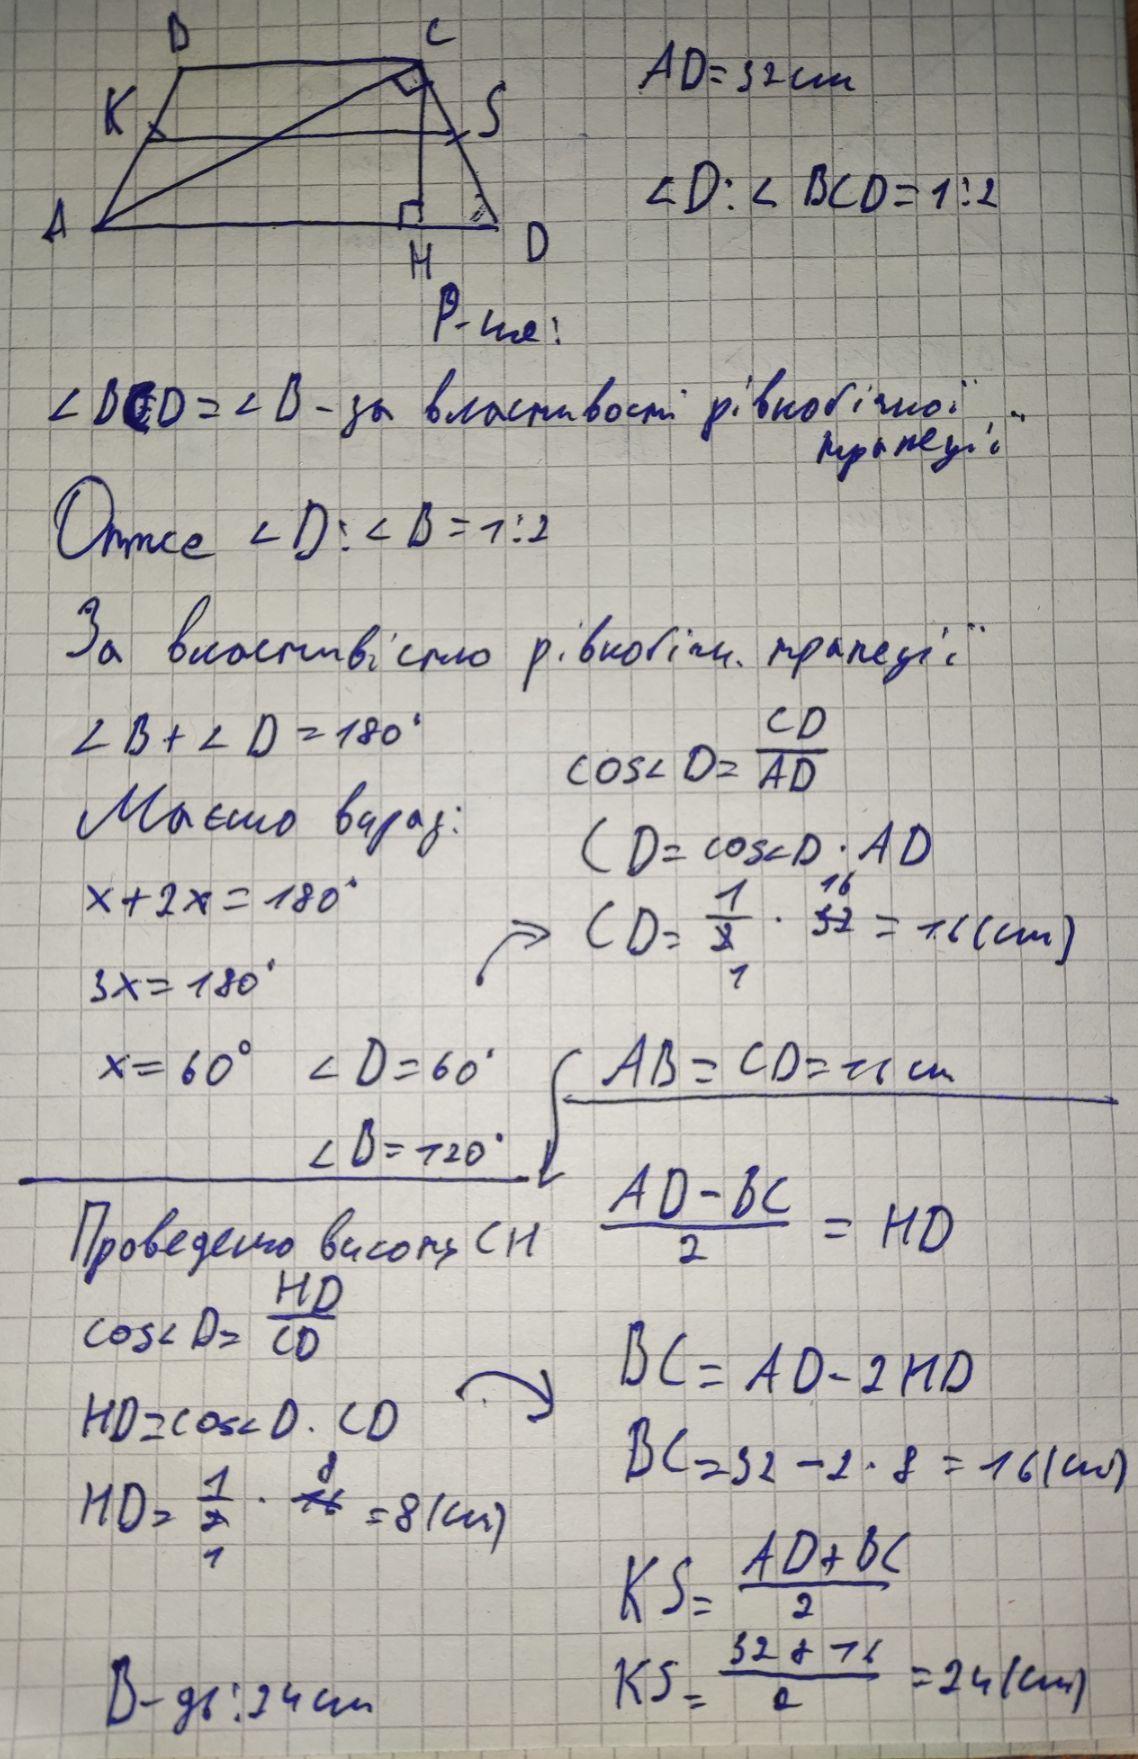 B C
K S
A H D
AD=32cm
∠D:∠BCD=1:2
Р-ня:
∠BCD=∠B-за властивості рівнобічної
трапеції
Отже ∠D:∠B=1:2
За властивістю рівнобічн. трапеції
∠B+∠D=180°
Маємо вираз:
x+2x=180°
3x=180°
x=60° ∠D=60°
∠B=120°
cos∠D= CD/AD
CD=cos∠D·AD
CD= 1/2 · 32 = 16(cm)
16
1
AB=CD=16cm
Проведемо висоту CH
cos∠D= HD/CD
HD=cos∠D·CD
HD= 1/2 · 16 =8(cm)
8
1
(AD-BC)/2 = HD
BC=AD-2HD
BC=32-2·8=16(cm)
KS= (AD+BC)/2
KS= (32+16)/2 =24(cm)
В-дь:24cm